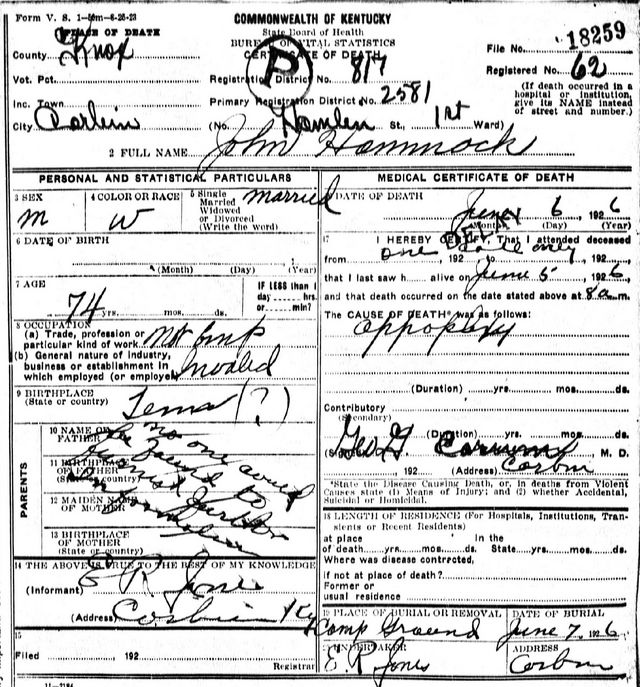 Form V. S. 1-50m-6-25-23
COMMONWEALTH OF KENTUCKY
State Board of Health
BUREAU OF VITAL STATISTICS
CERTIFICATE OF DEATH
File No. 18259
PLACE OF DEATH
County Knox
Registration District No. 817
Registered No. 62
Vot. Pct.
(If death occurred in a hospital or institution, give its NAME instead of street and number.)
Inc. Town
Primary Registration District No. 2581
City Corbin (No. Hamlen St., 1st Ward)
2 FULL NAME John Hammock
PERSONAL AND STATISTICAL PARTICULARS
3 SEX M
4 COLOR OR RACE W
5 Single Married Widowed or Divorced (Write the word) Married
6 DATE OF BIRTH
(Month) (Day) (Year)
7 AGE
74 yrs. mos. ds.
IF LESS than 1 day hrs. or min?
8 OCCUPATION
(a) Trade, profession or particular kind of work Not Emp
(b) General nature of industry, business or establishment in which employed (or employer) Invalid
9 BIRTHPLACE
(State or country) Tenn (?)
PARENTS
10 NAME OF FATHER
11 BIRTHPLACE OF FATHER
(State or country)
12 MAIDEN NAME OF MOTHER
13 BIRTHPLACE OF MOTHER
(State or country)
no one could
be found to
14 THE ABOVE IS TRUE TO THE BEST OF MY KNOWLEDGE
(Informant) E R Jones
(Address) Corbin Ky
15
Filed 192
Registrar
11-2184
MEDICAL CERTIFICATE OF DEATH
DATE OF DEATH
June 6, 1926
(Month) (Day) (Year)
17 I HEREBY CERTIFY, That I attended deceased
one call only
from 192 to 192
that I last saw h alive on June 5, 1926,
and that death occurred on the date stated above at 8 a m.
The CAUSE OF DEATH* was as follows:
Appoplexy
(Duration) yrs. mos. ds.
Contributory
(Secondary)
(Duration) yrs. mos. ds.
(Signed) Geo. G. M. D.
192 (Address) Corbin
*State the Disease Causing Death, or, in deaths from Violent Causes state (1) Means of Injury; and (2) whether Accidental, Suicidal or Homicidal.
18 LENGTH OF RESIDENCE (For Hospitals, Institutions, Transients or Recent Residents)
at place of death yrs. mos. ds. In the State yrs. mos. ds.
Where was disease contracted,
if not at place of death?
Former or usual residence
19 PLACE OF BURIAL OR REMOVAL
Camp Ground
DATE OF BURIAL
June 7, 1926
UNDERTAKER
E. R. Jones
ADDRESS
Corbin